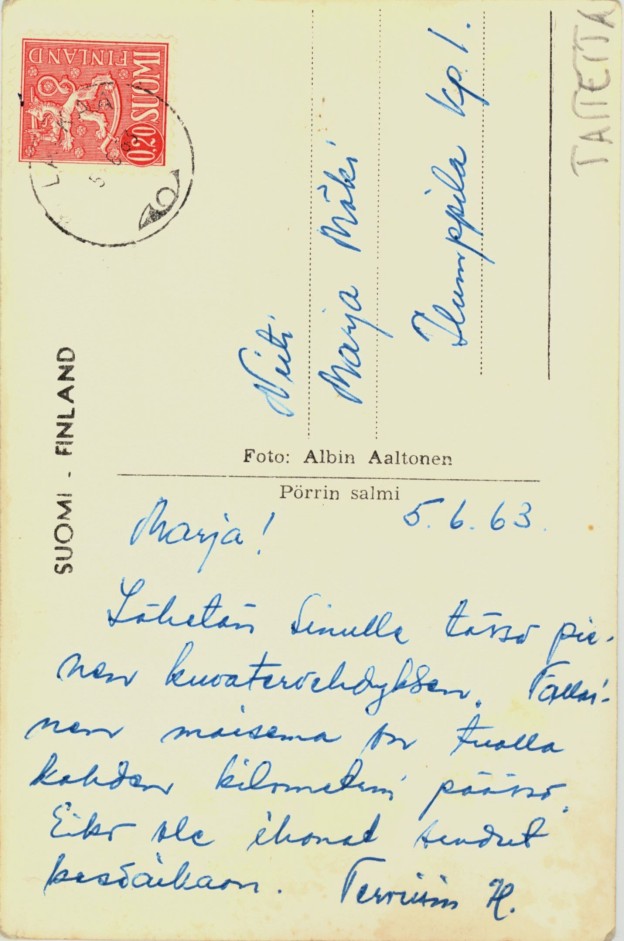 SUOMI FINLAND
0,20
5.6.63
TAITETTA
Neiti
Marja Mäki
Humppila kp 1.
SUOMI - FINLAND
Foto: Albin Aaltonen
Pörrin salmi
5.6.63.
Marja!
Lähetän Sinulle tässä pie-
nen kuvatervehdyksen. Tällai-
nen maisema on tuolla
kahden kilometrin päässä.
Eikö ole ihanat seudut
kesäaikaan. Terveisin H.